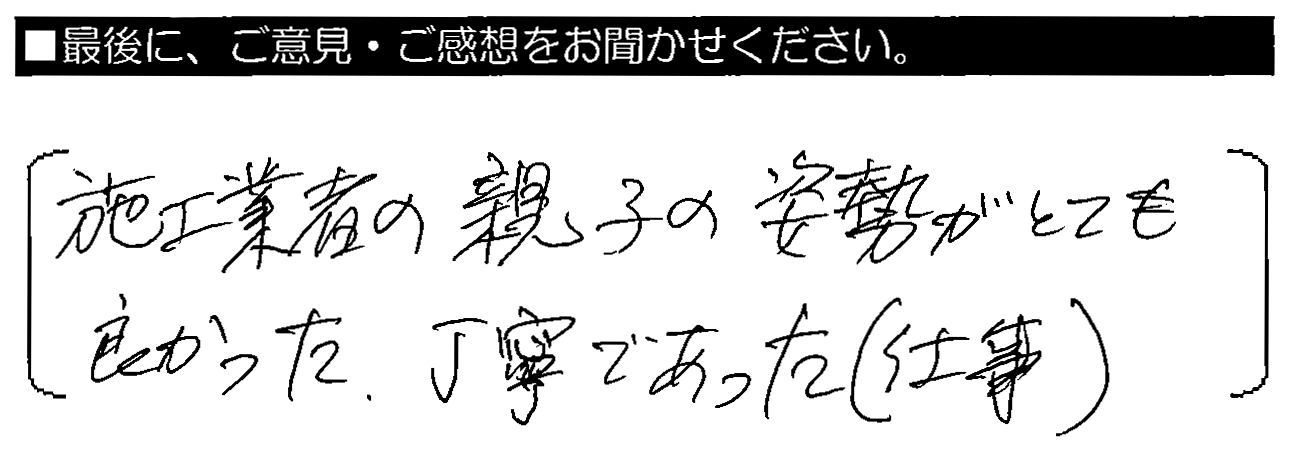 ■最後に、ご意見・ご感想をお聞かせください。
施工業者の親子の姿勢がとても
良かった.丁寧であった(仕事)